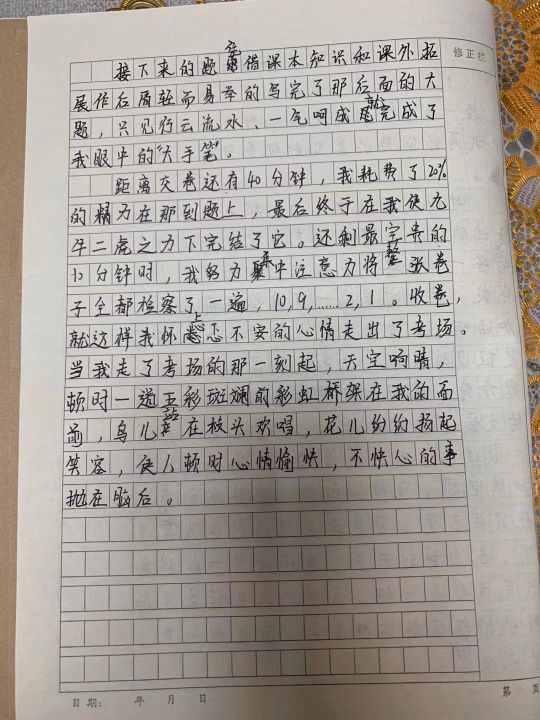 修正栏
接下来的题凭借课本知识和课外拓
展作后盾轻而易举的写完了那后面的大
题，只见行云流水、一气呵成就完成了
我眼中的“大手笔”。
距离交卷还有40分钟，我耗费了20%
的精力在那到题上，最后终于在我使九
牛二虎之力下完结了它。还剩最宝贵的
10分钟时，我努力集中注意力将整张卷
子全都检察了一遍，10,9,……2,1。收卷，
就这样我怀忐忑不安的心情走出了考场。
当我走了考场的那一刻起，天空响晴，
顿时一道五彩斑斓的彩虹桥架在我的面
前，鸟儿站在枝头欢唱，花儿纷纷扬起
笑容，使人顿时心情愉快，不快心的事
抛在脑后。
日期： 年 月 日
第 页